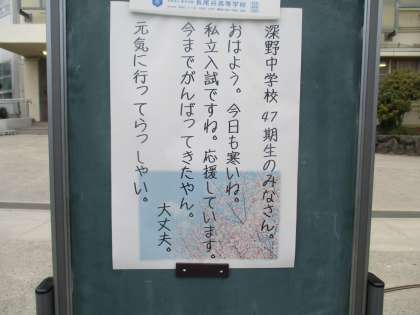 長尾谷高等学校
深野中学校 47期生のみなさん。
おはよう。今日も寒いね。
私立入試ですね。応援しています。
今までがんばってきたやん。
大丈夫。
元気に行ってらっしゃい。